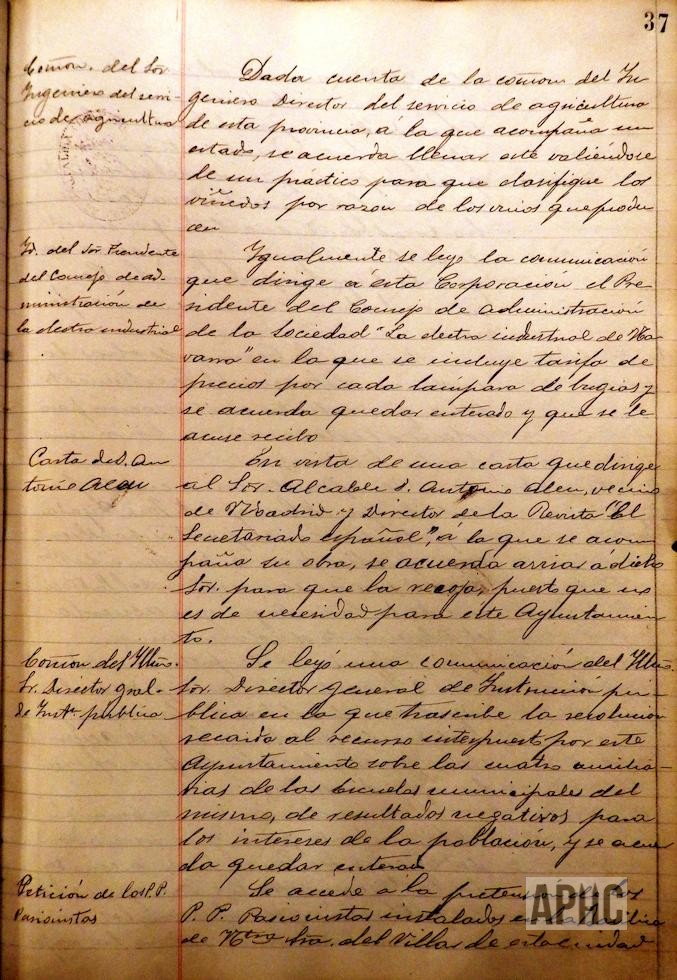 37
Comon. del Sor
Ingeniero del servi-
cio de agricultura
Dada cuenta de la comon del In-
geniero Director del servicio de agricultura
de esta provincia, á la que acompaña un
estado, se acuerda llenar este valiéndose
de un práctico para que clasifique los
viñedos por razon de los vinos que produ
cen
Id. del Sor Presidente
del Consejo de ad-
ministración de
la electra industrial
Igualmente se leyo la comunicación
que dirige á esta Corporación el Pre-
sidente del Consejo de administración
de la Sociedad "La electra industrial de Na-
varra" en la que se incluye tarifa de
precios por cada lampara de bugias y
se acuerda quedar enterado y que se le
acuse recibo
Carta de D. An
tonio Aleu
En vista de una carta que dirige
al Sor. Alcalde D. Antonio Aleu, vecino
de Madrid y Director de la Revista "El
Secretariado español", á la que se acom
paña su obra, se acuerda avisar á dicho
Sor. para que la recoja, puesto que no
es de necesidad para este Ayuntamien
to.
Comon del Iltmo.
Sr. Director gral.
de Insta. pública
Se leyó una comunicación del Iltmo.
Sor. Director general de Instrucción pú-
blica en la que trascribe la resolucion
recaida al recurso interpuesto por este
Ayuntamiento sobre las cuatro auxilia-
rias de las Escuelas municipales del
mismo, de resultados negativos para
los intereses de la población, y se acuer
da quedar enterado
Petición de los P.P.
Pasionistas
Se accede a la pretensión de los
P. P. Pasionistas instalados en la
de Ntra Sra. del Villar de esta ciudad
APHC